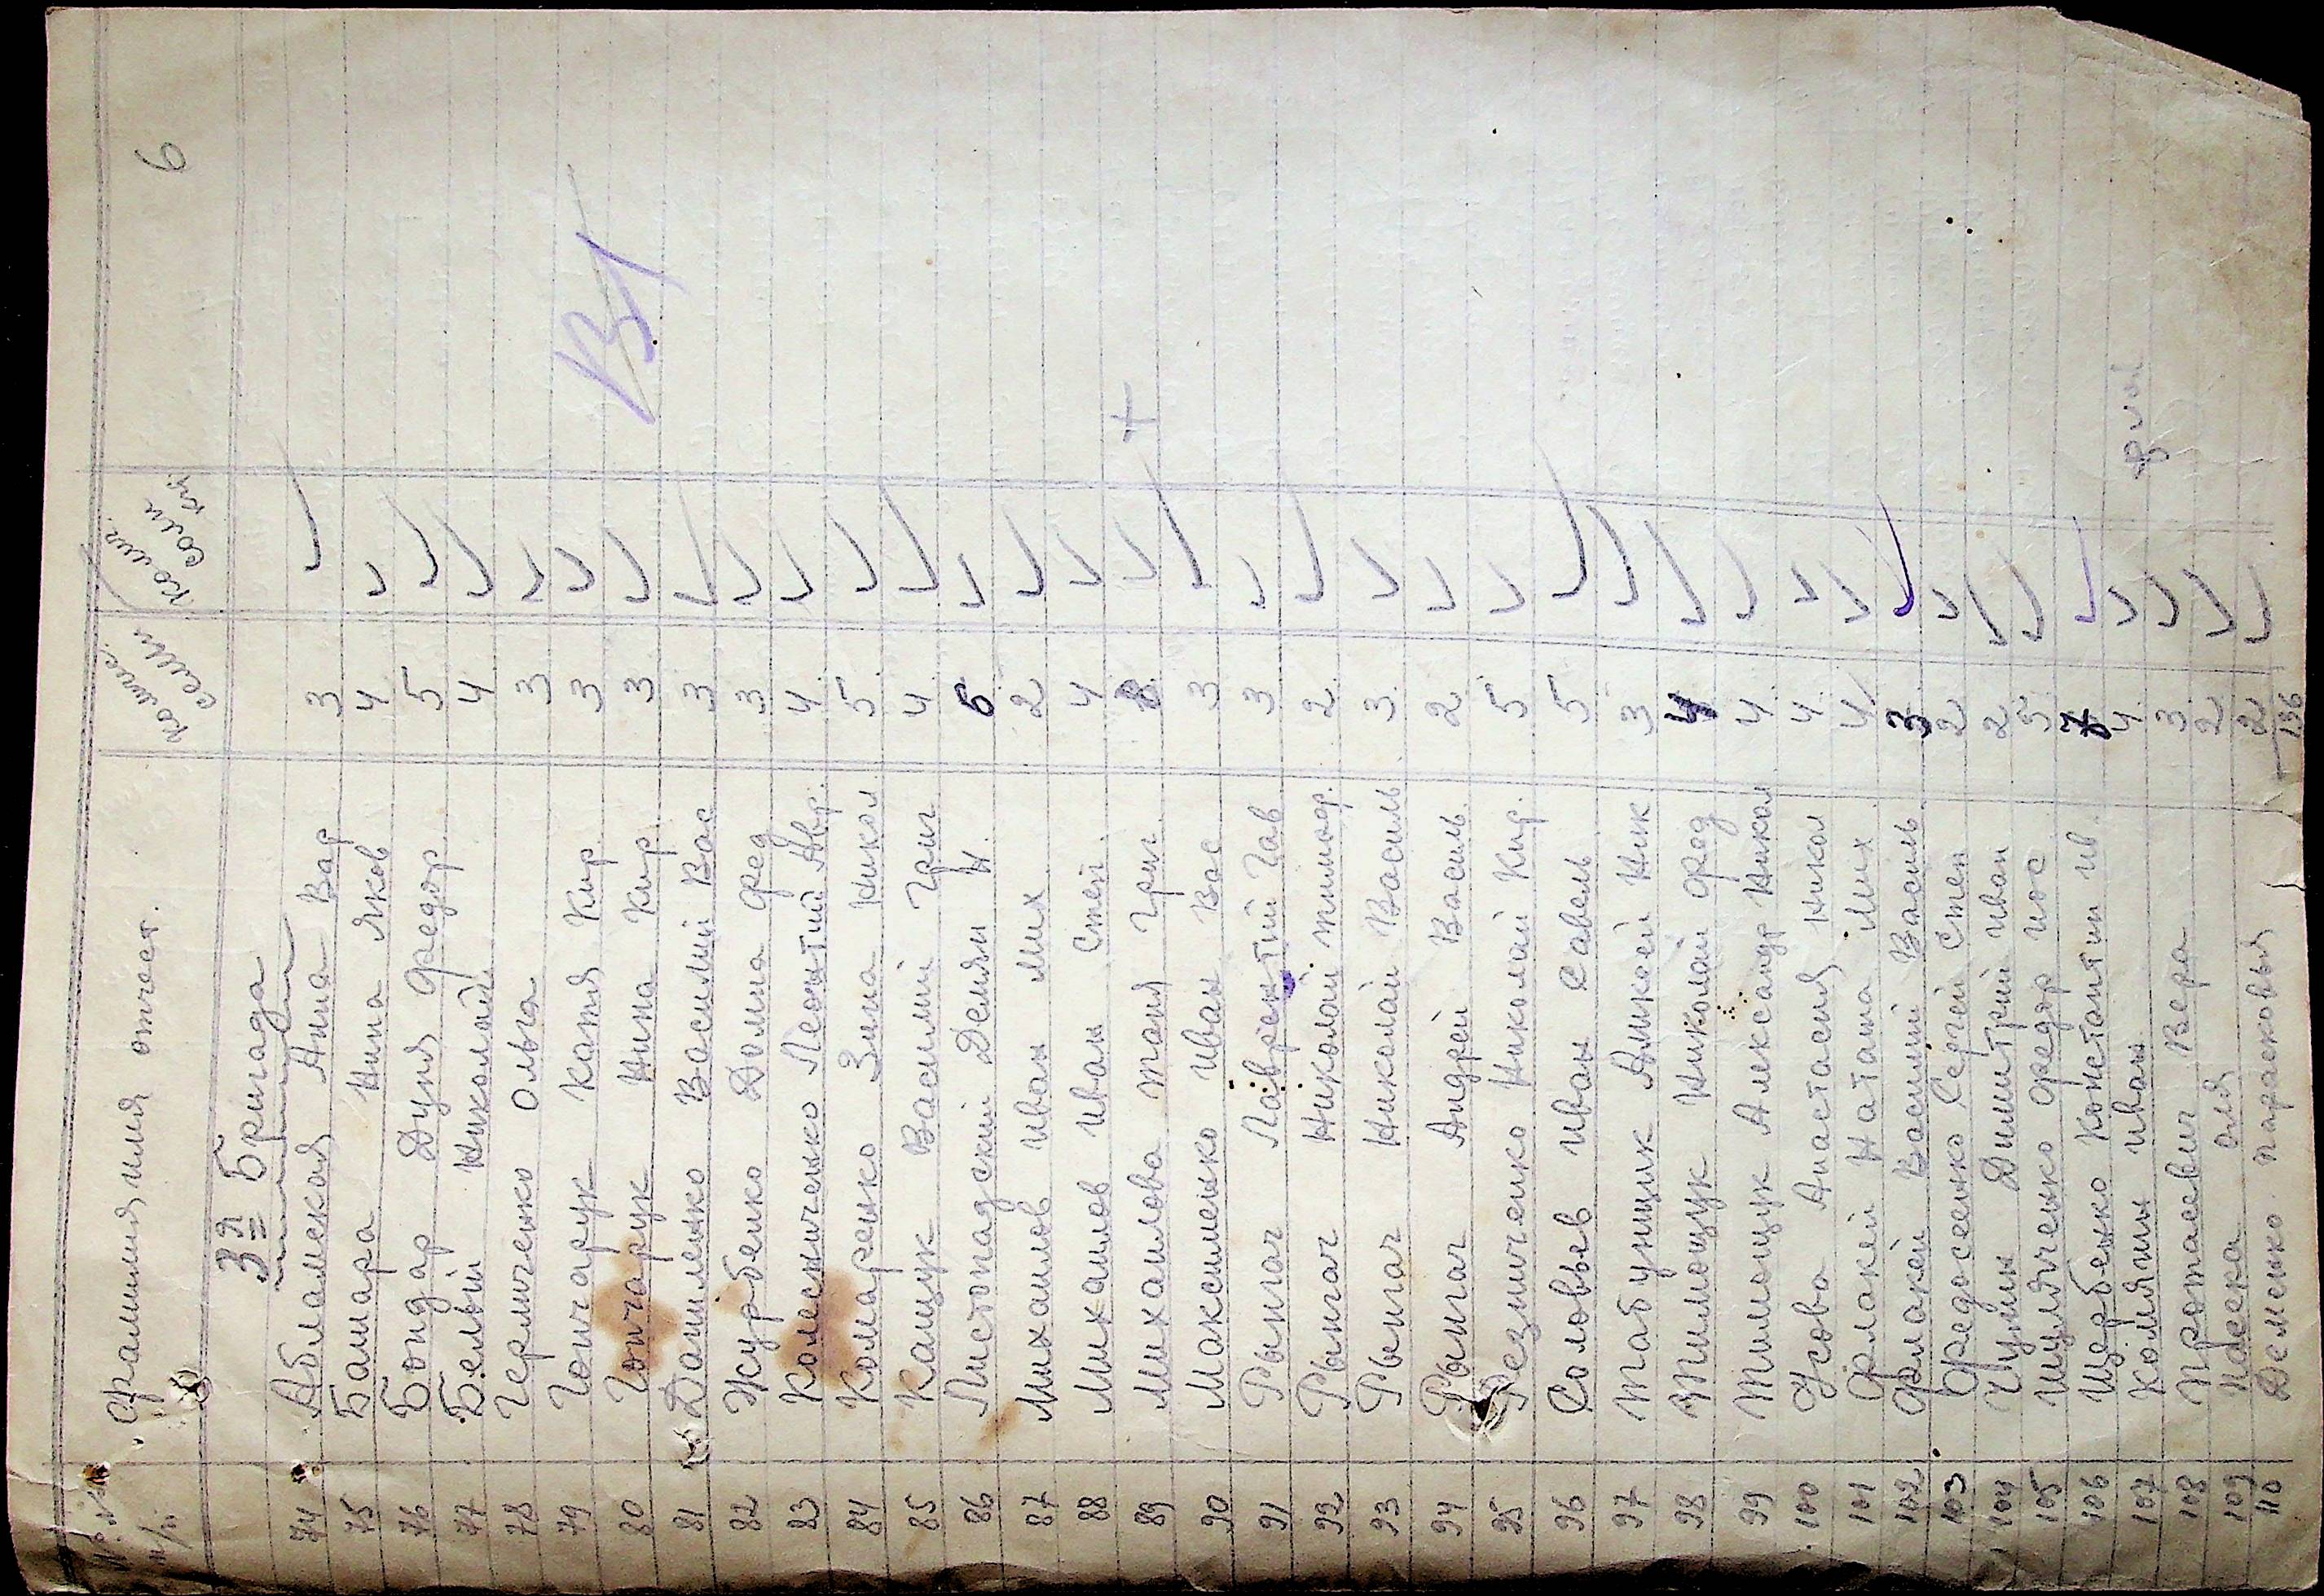 6
№ № п/п Фамилия имя отчест. количес. семи колич. соли кг
3я Бригада
74 Абламская Анна Вар 3
75 Башара Нина Яков 4
76 Бондар Дуня Федор. 5
77 Белый Николай 4
78 Герличенко Ольга 3
79 Гончарук Катя Кир. 3
80 Гончарук Нина Кир. 3
81 Даниленко Василий Вас 3
82 Журбенко Домна Фед 3
83 Колесниченко Леонтий Авр. 4
84 Комаренко Зина Никол 5
85 Кащук Василий Григ 4
86 Листопадский Демян Н. 6
87 Михаилов Иван Мих 2
88 Михаилов Иван Степ. 4
89 Михаилова Таня Григ. 3
90 Максименко Иван Вас 3
91 Рынгач Лаврентий Гав 3
92 Рынгач Николай Тимоф. 2
93 Рынгач Николай Василь 3
94 Рынгач Андрей Василь 2
95 Резниченко Николай Кир. 5
96 Соловьев Иван Савель 5
97 Табунщик Аликсей Ник 3
98 Тимощук Николай Фед 4
99 Тимощук Александр Никол 4
100 Усова Анастасия Никол 4
101 Фрлакей Наташа Мих. 4
102 Фрлакей Василий Василь 3
103 Федосеенко Сергей Степ 2
104 Чумик Димитрий Иван 2
105 Шуляченко Федор Иос 5
106 Щербенко Константин Ив
107 Комятин Иван 4
108 Протасевич Вера 3
109 Оля 2
110 Деменко Парасковья 2
136